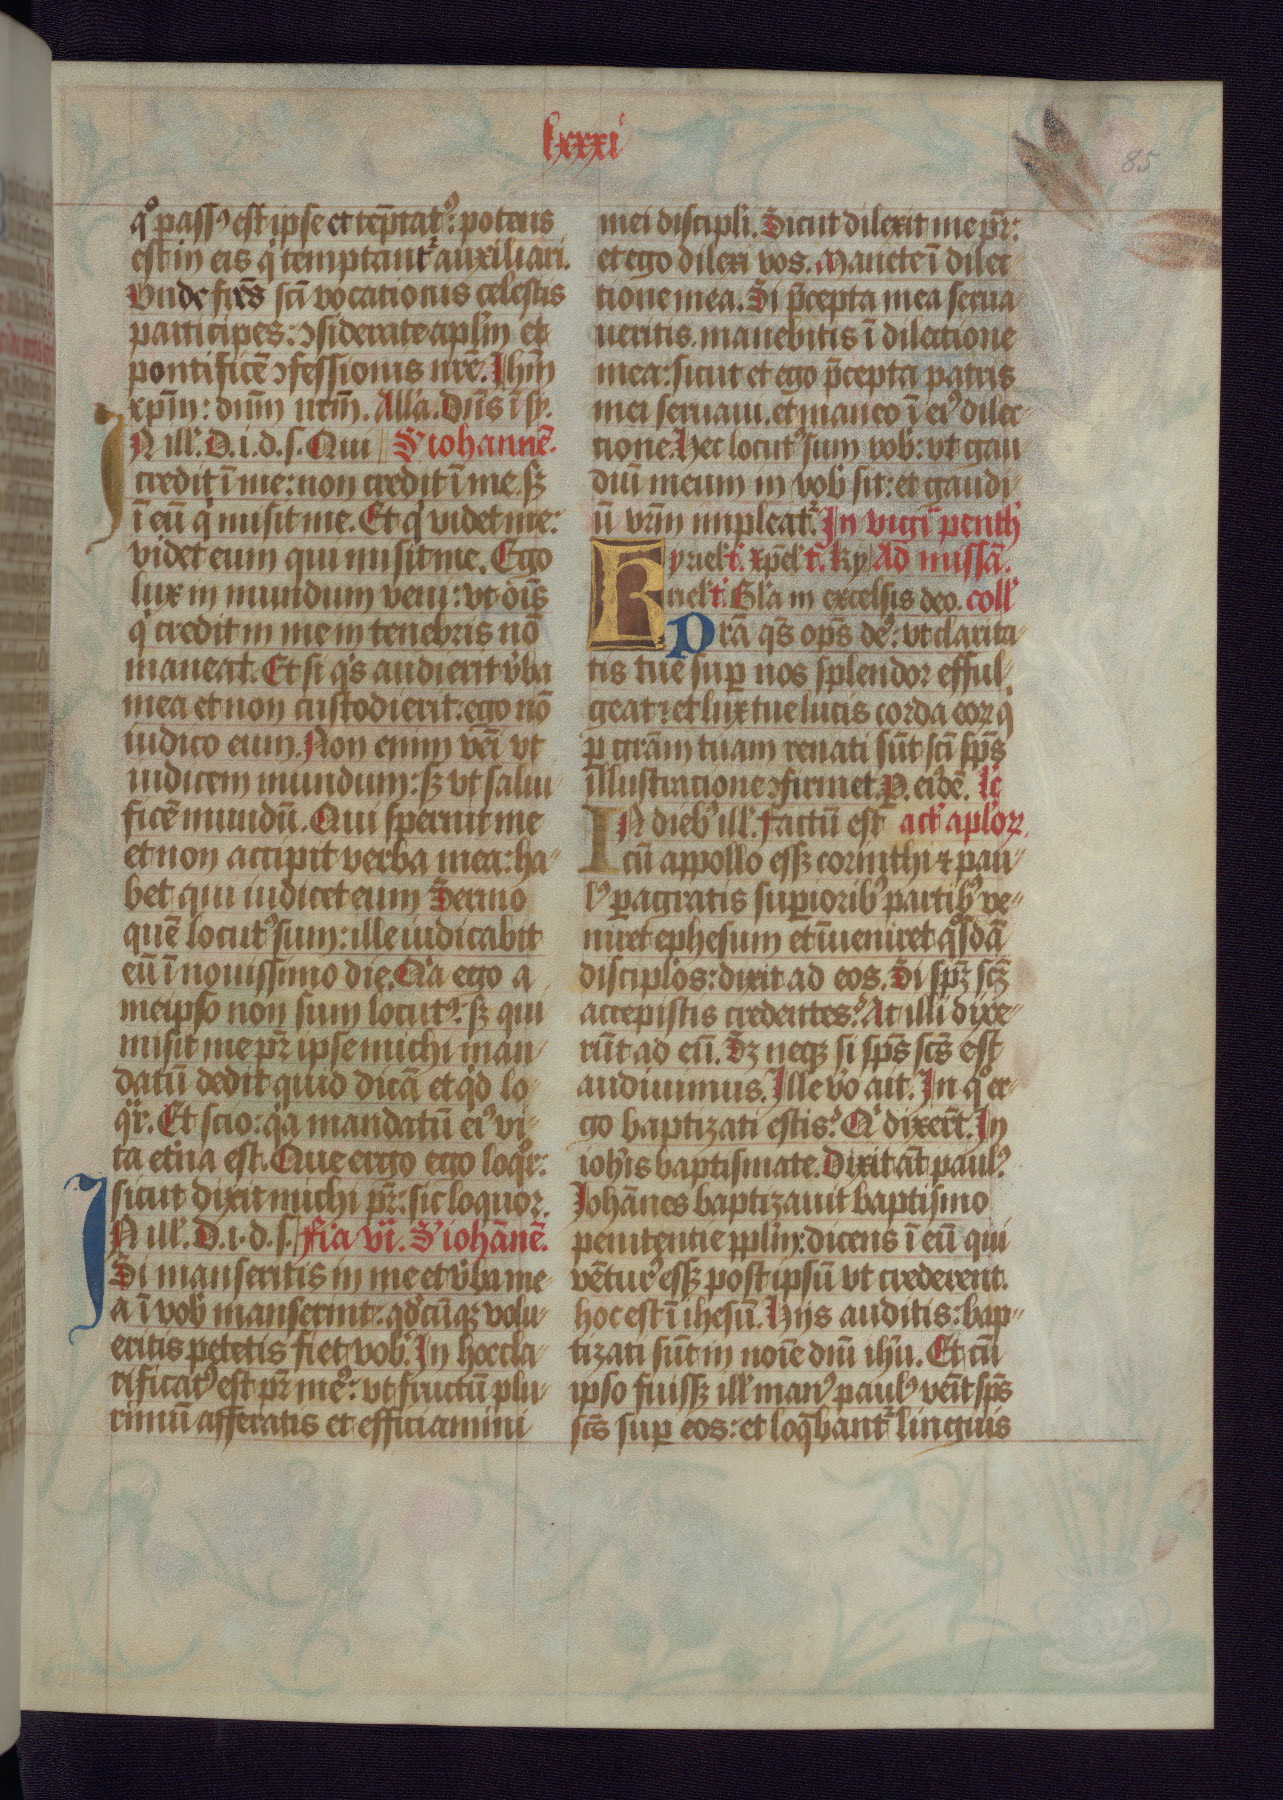 lxxxi
85
qͦ pass᷒ est ipse et tēptat᷒: potens
est in eis q̇ temptantᷣ auxiliari.
Vnde fr̄es sc̄i vocationis celestis
participes: ↄsiderate apl̄m et
pontificē ↄfessionis nr̄e. Ihm̄
xp̄m: dn̄m nr̄m. Alla. Dn̄s ī sy.
N ill'. D. i. d. s. Qui S' iohannē.
credit ī me: non credit ī me. sꝫ
ī eū q̇ misit me. Et q̇ videt me:
videt eum qui misit me. Ego
lux in mundum veni: vt oīs
q̇ credit in me in tenebris nō
maneat. Et si q̇s audierit v̄ba
mea et non custodierit: ego nō
iudico eum. Non enim vēi vt
iudicem mundum: sꝫ vt salui-
ficē mundū. Qui spernit me
et non accipit verba mea: ha-
bet qui iudicet eum Sermo
quē locut᷒ sum: ille iudicabit
eū ī nouissimo die. Q̇a ego a
meipso non sum locut᷒: sꝫ qui
misit me pr̄ ipse michi man-
datū dedit quid dicā et q̇d lo-
q̇r. Et scio: q̇a mandatū ei᷒ vi-
ta et̄na est. Que ergo ego loq̇r:
sicut dixit michi pr̄: sic loquor.
IN ill'. D. i. d. s. fīa vi. S' iohānē.
Si manseritis in me et v̄ba me-
a ī vob̄ manserint: qd̄cūqꝫ volu-
eritis petetis fiet vob̄. In hoc cla-
rificat᷒ est pr̄ me᷒: vt fructū plu-
rimū afferatis et efficiamini
mei discipli. Sicut dilexit me pr̄:
et ego dilexi vos. Manete ī dilec-
tione mea. Si p̄cepta mea serua-
ueritis. manebitis ī dilectione
mea: sicut et ego p̄cepta patris
mei seruaui. et maneo ī ei᷒ dilec-
tione. Hec locut᷒ sum vob̄: vt gau-
diū meum in vob̄ sit: et gaudi-
ū vr̄m impleatᷣ. In vigi' penth'
Kyriel'. t'. xp̄el'. t'. ky Ad missā.
riel'. t'. Gl'a in excelsis deo. coll'
Prā q̄s op̄s de᷒: vt clarita-
tis tue suꝑ nos splendor efful-
geat: et lux tue lucis corda eoꝝ q̇
ꝑ gr̄am tuam renati sūt sc̄i sp̄s
illustracione ↄfirmet. P. eīdē. lc̄
IN dieb᷒ ill'. Factū est act' apl'oꝝ
cū appollo essꝫ corinthi ⁊ pau-
l᷒ ꝑagratis suꝑiorib᷒ partib᷒ ve-
niret ephesum et īueniret q̇sdā
disciplos: dixit ad eos. Si spm̄ scm̄
accepistis credentes? At illi dixe-
rūt ad eū. Sꝫ neqꝫ si sp̄s sc̄s est
audiuimus. Ille vͦo ait. In qͦ er-
go baptizati estis? Q̇ dixert̄. In
ioh̄is baptismate. Dixit āt paul᷒
Johānes baptizauit baptismo
penitentie ppl̄m: dicens ī eū qui
vētur᷒ essꝫ post ipsū vt crederent.
hoc est ī ihesū. Hiis auditis: bap-
tizati sūt in noīe dn̄i ihu. Et cū
ipso fuissꝫ ill' man᷒ paul᷒ veīt sp̄s
sc̄s suꝑ eos: et loq̄bantᷣ linguis